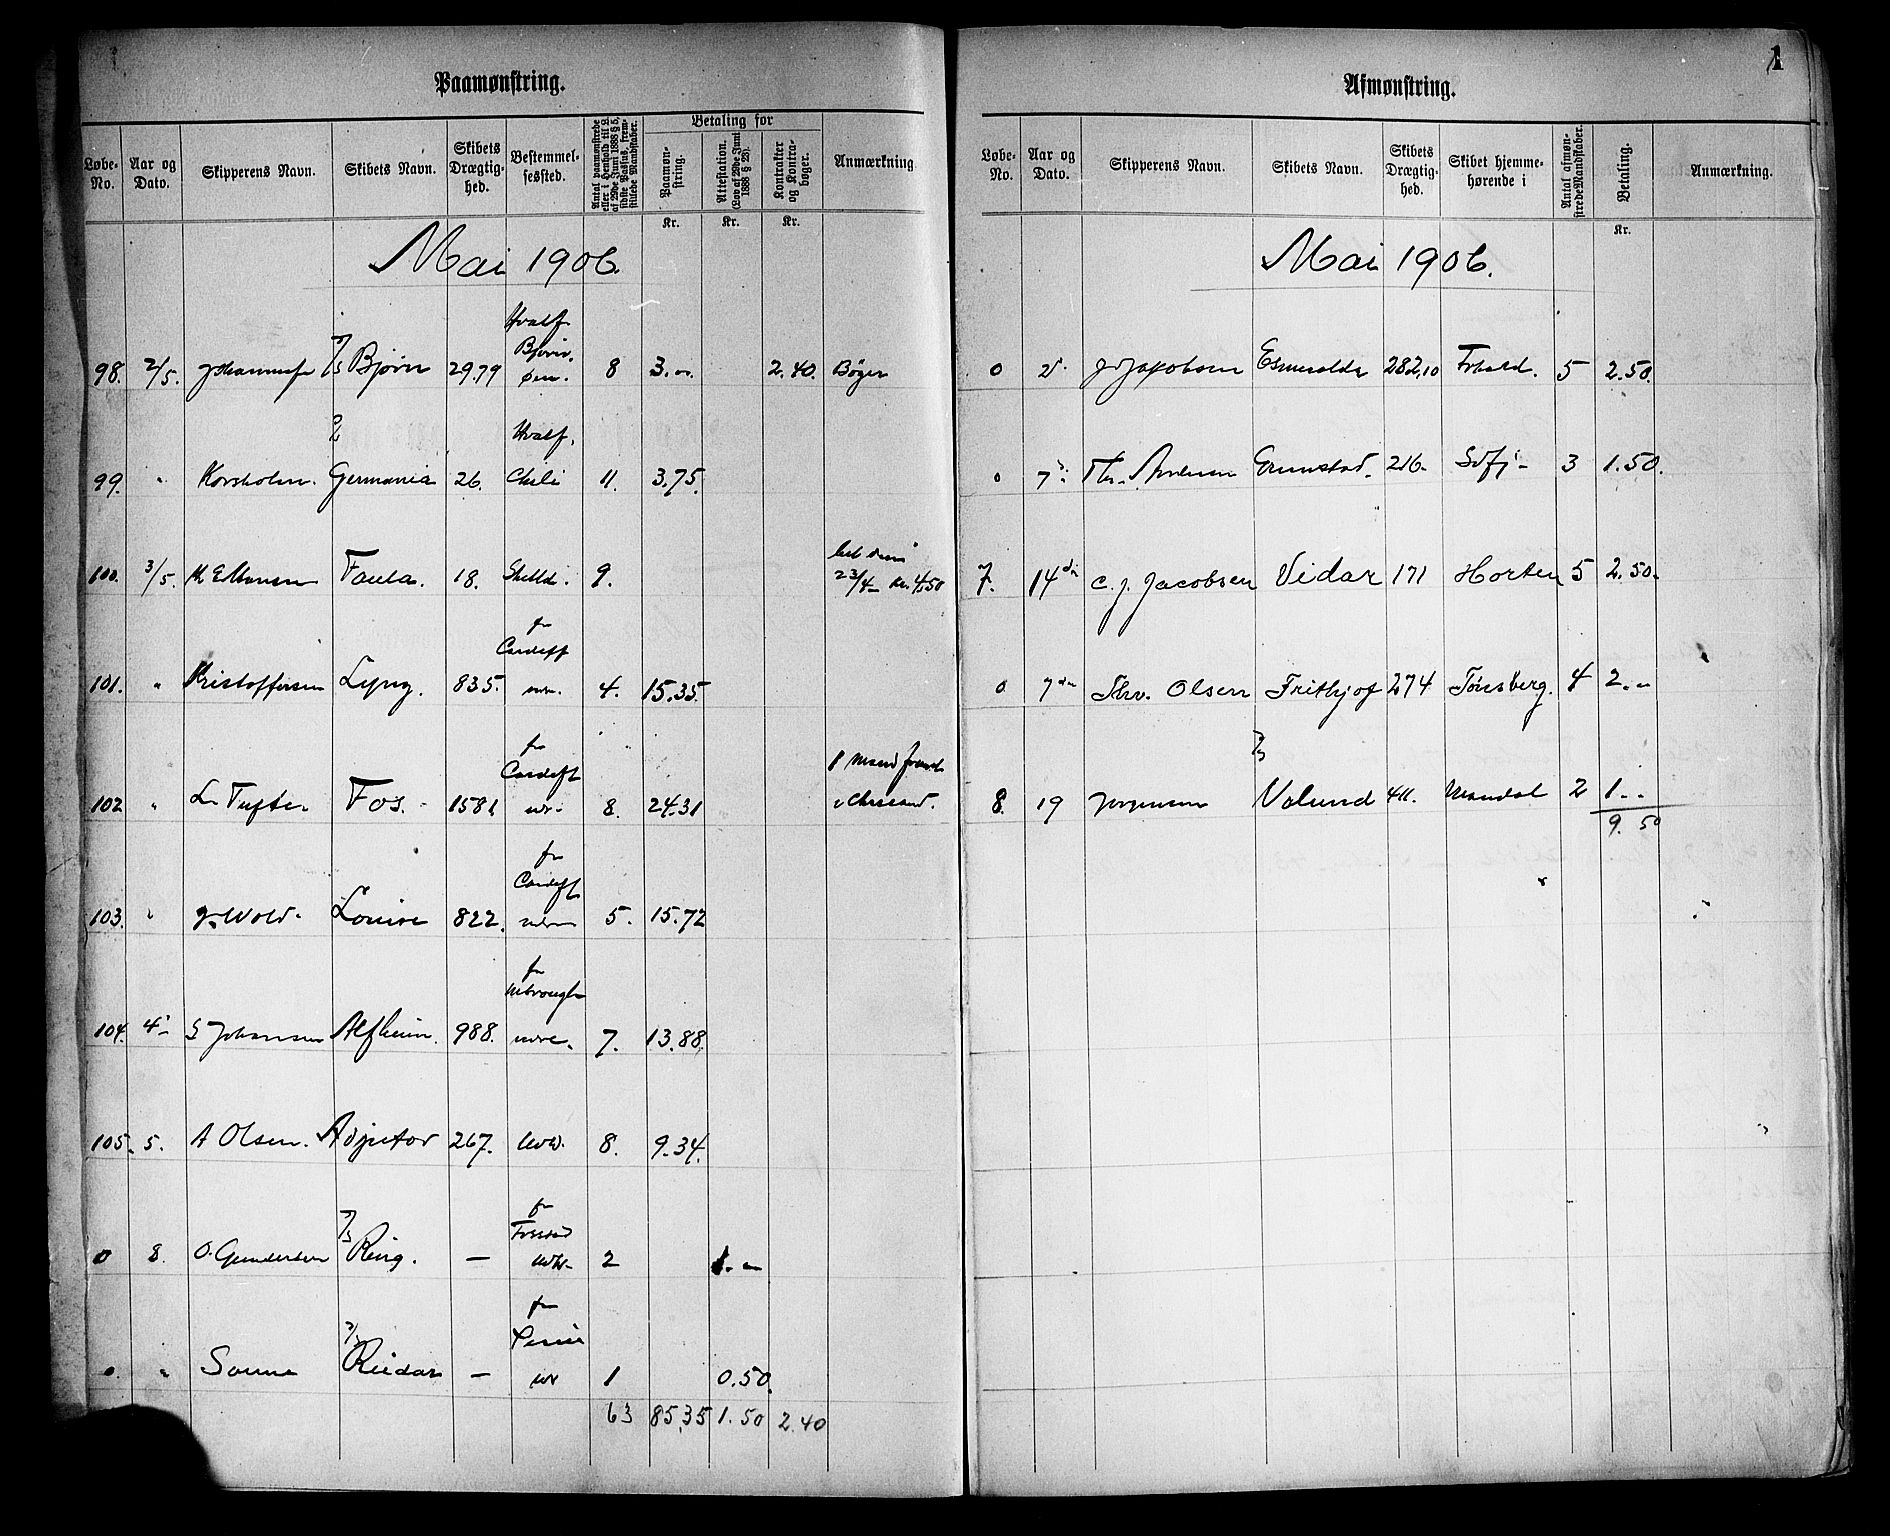 Paamønstring.
Løbe-No. Aar og Dato. Skipperens Navn. Skibets Navn. Skibets Drægtighed. Bestemmelsessted. Antal paamønstrede eller i Henhold til L. af 29de Juni 1888 § 5, sidste Passus, fremstillede Mandskaber. Betaling for Paamønstring. Attestation. (Lov af 29de Juni 1888 § 23). Kontrakter og Kontrabøger. Anmærkning
Kr. Kr. Kr.
Mai 1906
Hvalf
98. 2/5. Bjørn 29.79 8 3.„ 2.40. Bøger
Hvalf.
99. „ Korsholm. Germania 26. Chili 11. 3.75.
100. 3/5. Faula. 18. 9. 23/4 Kr. 4,50
fr Cardiff
101. „ Kristoffersen Lyng. 835. 4. 15.35.
fr Cardiff 1 Mand
102 „ L. Tufte. Fos. 1581 8. 24.31
fr Cardiff
103. „ Wold. Louise 822. 5. 15.72
fr
104. 4 S Johansen Alfheim. 988. 7. 13.88.
105. 5. A Olsen. Adjutor 267. 8. 9.34.
fr
0 8. O. Gundersen Ring. — 2 1.„
fr
0. „ Reidar — 1 0.50.
63 85,35 1.50 2.40
1
Afmønstring.
Løbe-No. Aar og Dato. Skipperens Navn. Skibets Navn. Skibets Drægtighed. Skibet hjemmehørende i Antal afmønstrede Mandskaber. Betaling. Anmærkning.
Kr.
Mai 1906.
0 Jakobsen Esmeralda 282,10 5 2.50.
0 7 Grimstad. 216. 3 1.50.
7. 14de C. J. Jacobsen Vidar 171 Horten 5 2.50.
0. 7de Thv. Olsen Frithjof 274 Tønsberg. 4 2.„
8. 19 Jørgensen Vølund 411. Mandal 2 1.„
9.50